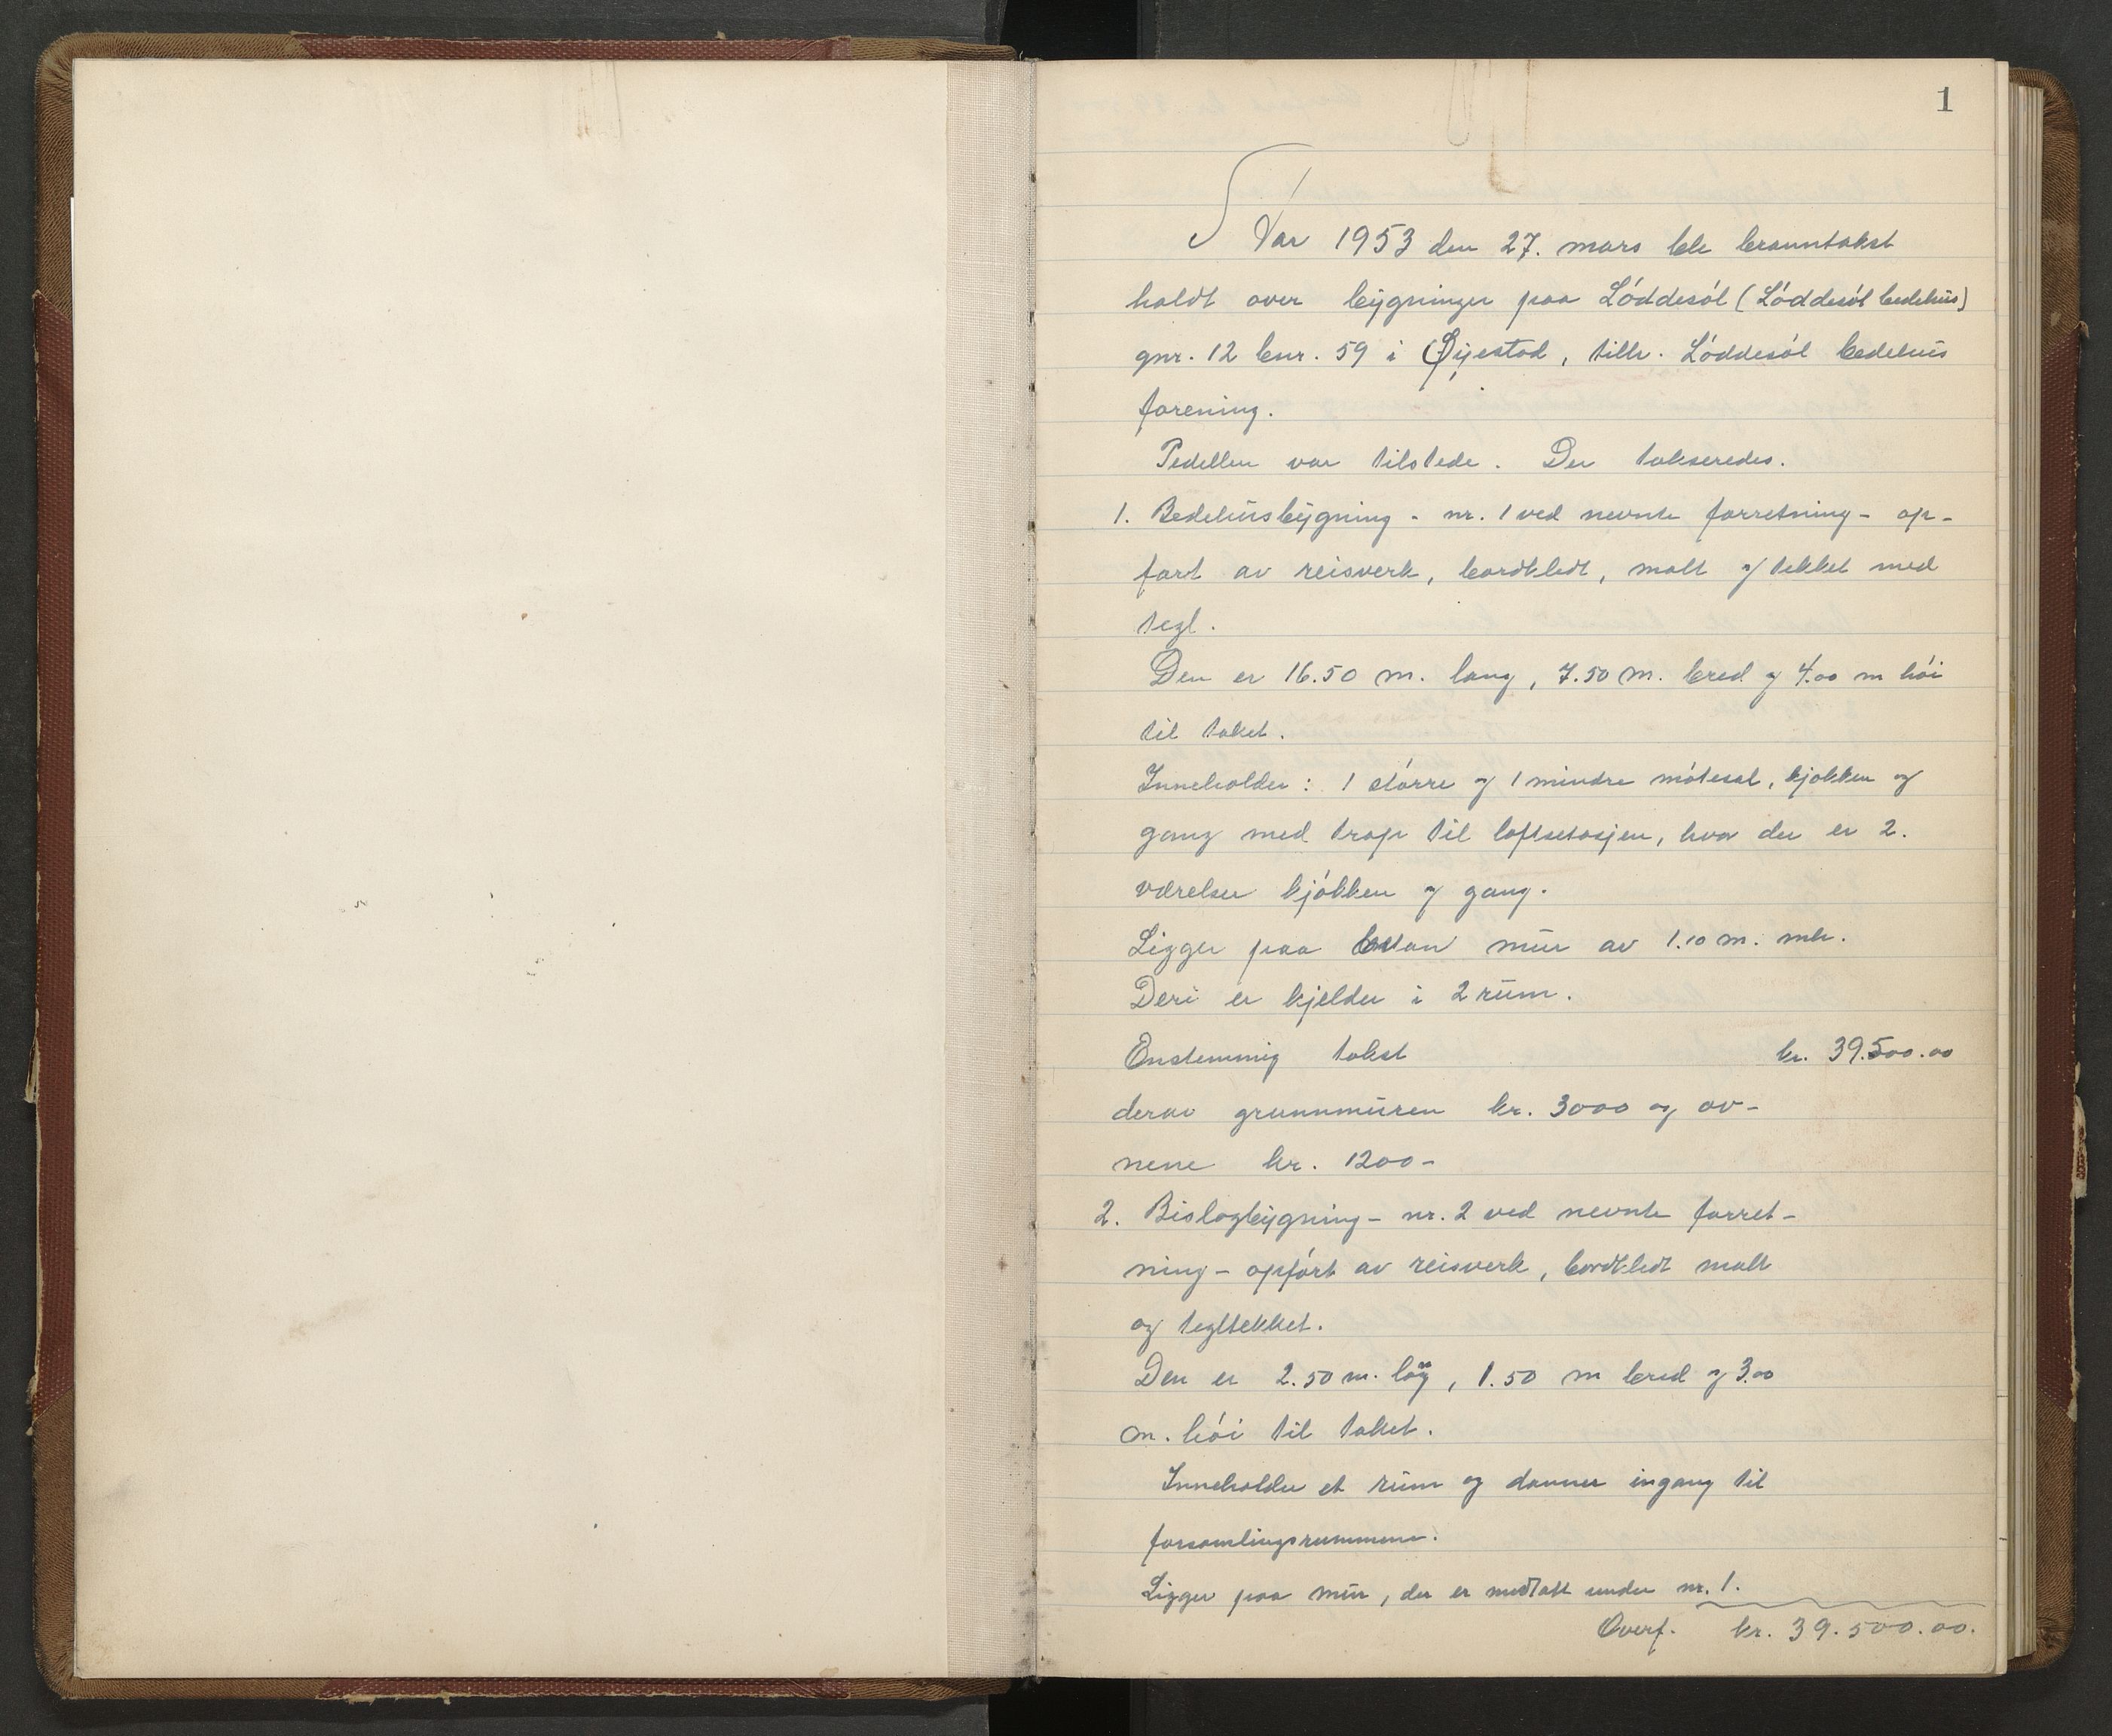 1
Aar 1953 den 27. mars ble branntakst
holdt over bygninger paa Løddesøl (Løddesøl bedehus)
gnr. 12 bnr. 59 i Øyestad, tilh. Løddesøl bedehus
forening.
Pedellen var tilstede. Der takseredes.
1. Bedehusbygning - nr. 1 ved nevnte forretning - op-
ført av reisverk, bordkledt, malt og tekket med
tegl.
Den er 16.50 m. lang, 7.50 m. bred og 4.00 m høi
til taket.
Inneholder: 1 større og 1 mindre møtesal, kjøkken og
gang med trap til loftsetasjen, hvor der er 2.
værelser kjøkken og gang.
Ligger paa betan mur av 1.10 m. mh.
Deri er kjelder i 2 rum.
Enstemmig takst kr. 39.500.00
derav grunnmuren kr. 3000 og ov-
nene kr. 1200-
2. Bislagbygning - nr. 2 ved nevnte forret-
ning - opført av reisverk, bordkledt malt
og tegltekket.
Den er 2.50 m. lang, 1.50 m bred og 3.00
m. høi til taket.
Inneholder et rum og danner ingang til
forsamlingsrummene.
Ligger paa mur, der er medtatt under nr. 1.
Overf. kr. 39.500.00.